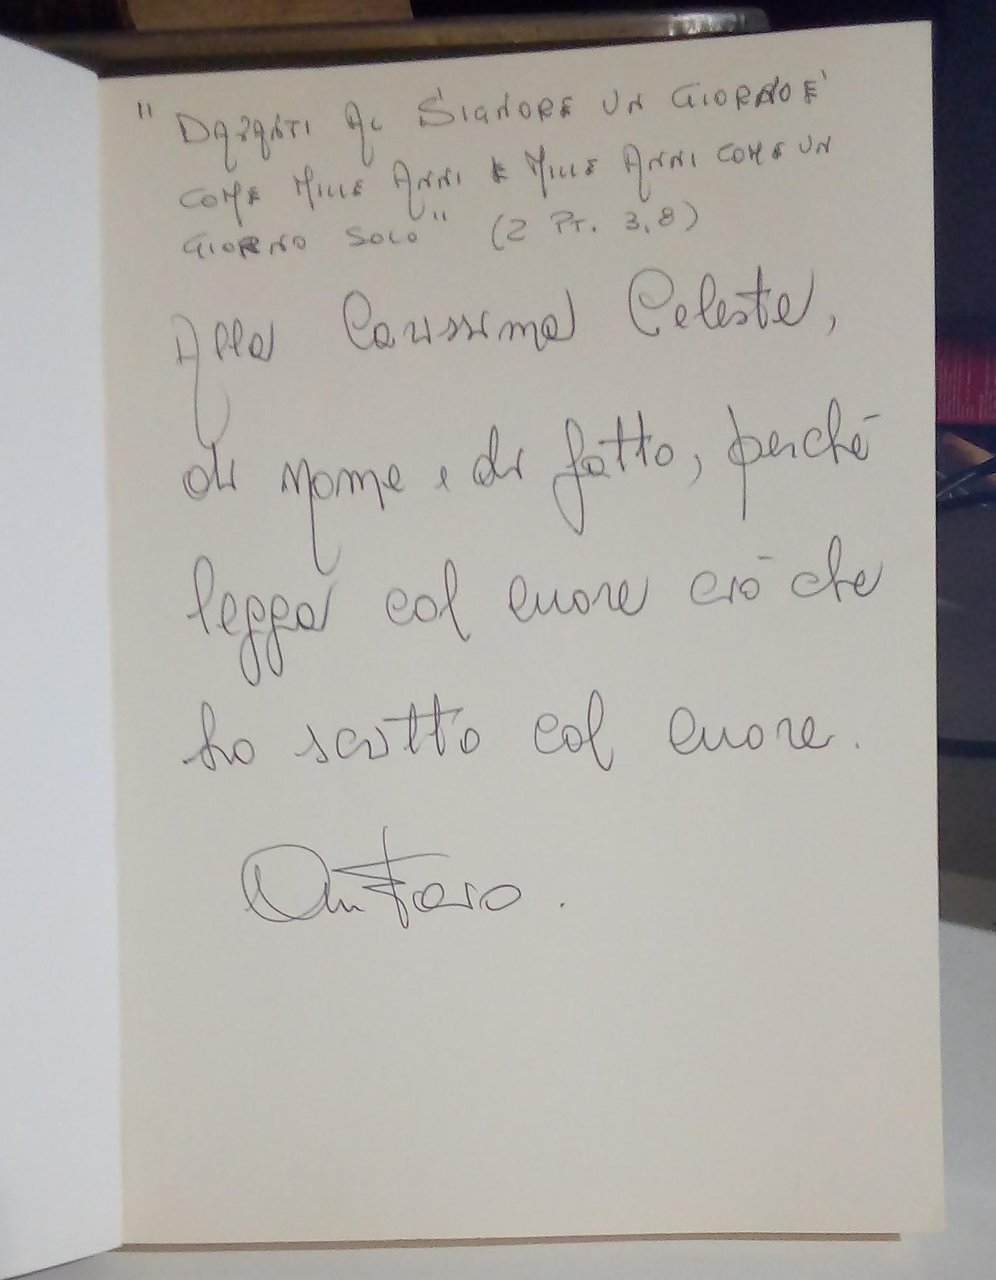 "DAVANTI AL SIGNORE UN GIORNO E'
COME MILLE ANNI E MILLE ANNI COME UN
GIORNO SOLO" (2 PT. 3,8)
Alla Carissima Celeste,
di nome e di fatto, perché
legga col cuore ciò che
ho scritto col cuore.